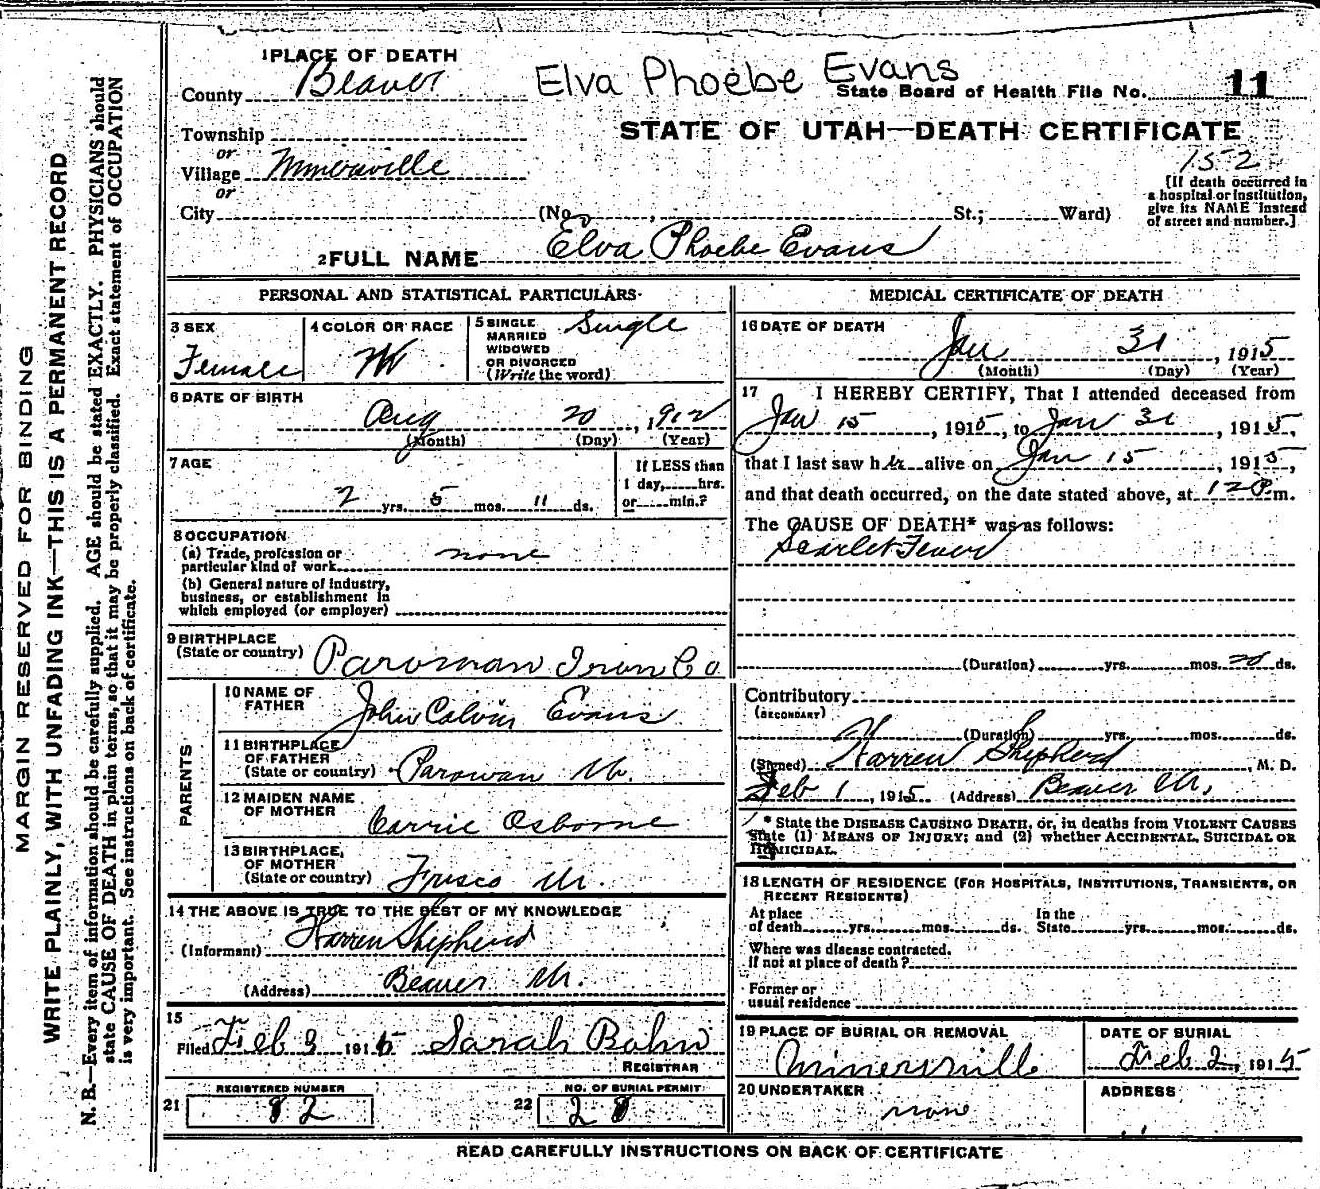 MARGIN RESERVED FOR BINDING
WRITE PLAINLY, WITH UNFADING INK—THIS IS A PERMANENT RECORD
N. B.—Every item of information should be carefully supplied. AGE should be stated EXACTLY. PHYSICIANS should
state CAUSE OF DEATH in plain terms, so that it may be properly classified. Exact statement of OCCUPATION
is very important. See instructions on back of certificate.
1 PLACE OF DEATH
County Beaver
Elva Phoebe Evans
State Board of Health File No. 11
Township
or
Village Minersville
or
City
STATE OF UTAH—DEATH CERTIFICATE
152
[If death occurred in
a hospital or institution,
give its NAME instead
of street and number.]
(No. , St.; Ward)
2 FULL NAME Elva Phoebe Evans
PERSONAL AND STATISTICAL PARTICULARS
3 SEX
Female
4 COLOR OR RACE
W
5 SINGLE
MARRIED
WIDOWED
OR DIVORCED
(Write the word)
Single
6 DATE OF BIRTH
Aug 20, 1912
(Month) (Day) (Year)
7 AGE
2 yrs. 5 mos. 11 ds.
If LESS than
1 day, hrs.
or min.?
8 OCCUPATION
(a) Trade, profession or
particular kind of work none
(b) General nature of industry,
business, or establishment in
which employed (or employer)
9 BIRTHPLACE
(State or country) Parowan Iron Co
PARENTS
10 NAME OF
FATHER John Calvin Evans
11 BIRTHPLACE
OF FATHER
(State or country) Parowan Ut.
12 MAIDEN NAME
OF MOTHER Carrie Osborne
13 BIRTHPLACE
OF MOTHER
(State or country) Frisco Ut.
14 THE ABOVE IS TRUE TO THE BEST OF MY KNOWLEDGE
(Informant) Warren Shepherd
(Address) Beaver Ut.
15
Filed Feb 3 1915 Sarah Bohn
REGISTRAR
REGISTERED NUMBER
21 82
NO. OF BURIAL PERMIT
22
MEDICAL CERTIFICATE OF DEATH
16 DATE OF DEATH
Jan 31, 1915
(Month) (Day) (Year)
17 I HEREBY CERTIFY, That I attended deceased from
Jan 15, 1915, to Jan 31, 1915,
that I last saw her alive on Jan 15, 1915,
and that death occurred, on the date stated above, at 12 P.m.
The CAUSE OF DEATH* was as follows:
Scarlet Fever
(Duration) yrs. mos. 20 ds.
Contributory
(SECONDARY)
(Duration) yrs. mos. ds.
(Signed) Warren Shepherd, M. D.
Feb 1, 1915 (Address) Beaver Ut.
* State the DISEASE CAUSING DEATH, or, in deaths from VIOLENT CAUSES
state (1) MEANS OF INJURY; and (2) whether ACCIDENTAL, SUICIDAL OR
HOMICIDAL.
18 LENGTH OF RESIDENCE (FOR HOSPITALS, INSTITUTIONS, TRANSIENTS, OR
RECENT RESIDENTS)
At place
of death yrs. mos. ds.
In the
State yrs. mos. ds.
Where was disease contracted.
If not at place of death?
Former or
usual residence
19 PLACE OF BURIAL OR REMOVAL
Minersville
DATE OF BURIAL
Feb 2, 1915
20 UNDERTAKER
none
ADDRESS
READ CAREFULLY INSTRUCTIONS ON BACK OF CERTIFICATE